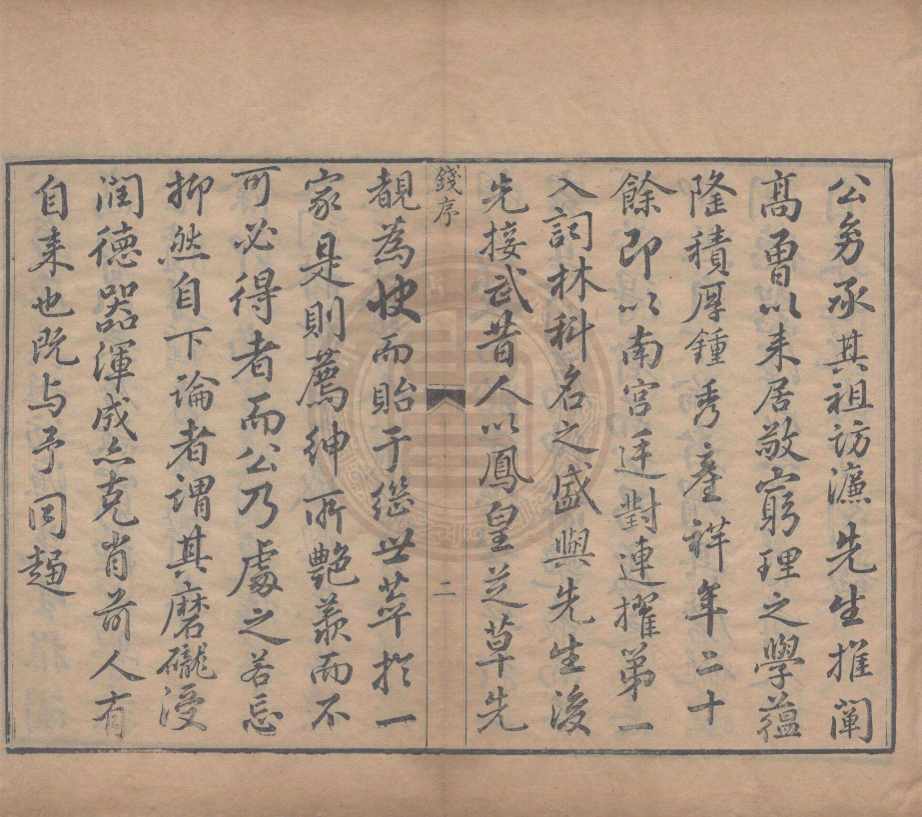 公多承其祖訪濂先生推闡
高曾以来居敬窮理之學蘊
隆積厚鍾秀産祥年二十
餘即以南宮廷對連擢第一
入詞林科名之盛與先生後
先接武昔人以鳳皇芝草先
錢序
二
覩為快而貽于繼世萃於一
家是則薦紳所艷羨而不
可必得者而公乃處之若忘
抑然自下論者謂其磨礲浸
潤德器渾成亦克肖前人有
自来也既与予同趨